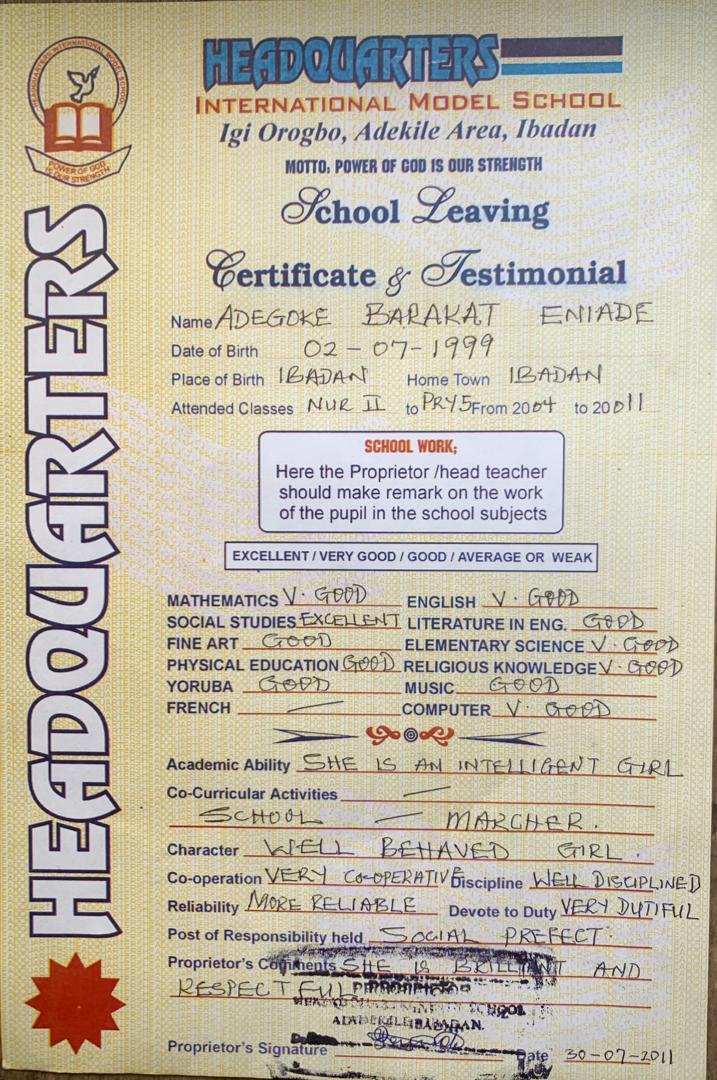 HEADQUARTERS INTERNATIONAL MODEL SCHOOL
POWER OF GOD
IS OUR STRENGTH
HEADQUARTERS
HEADQUARTERS
INTERNATIONAL MODEL SCHOOL
Igi Orogbo, Adekile Area, Ibadan
MOTTO: POWER OF GOD IS OUR STRENGTH
School Leaving
Certificate & Testimonial
Name ADEGOKE BARAKAT ENIADE
Date of Birth 02-07-1999
Place of Birth IBADAN Home Town IBADAN
Attended Classes NUR II to PRY5 From 2004 to 20011
SCHOOL WORK;
Here the Proprietor /head teacher
should make remark on the work
of the pupil in the school subjects
EXCELLENT / VERY GOOD / GOOD / AVERAGE OR WEAK
MATHEMATICS V. GOOD ENGLISH V. GOOD
SOCIAL STUDIES EXCELLENT LITERATURE IN ENG. GOOD
FINE ART GOOD ELEMENTARY SCIENCE V. GOOD
PHYSICAL EDUCATION GOOD RELIGIOUS KNOWLEDGE V. GOOD
YORUBA GOOD MUSIC GOOD
FRENCH — COMPUTER V. GOOD
Academic Ability SHE IS AN INTELLIGENT GIRL
Co-Curricular Activities —
SCHOOL — MARCHER.
Character WELL BEHAVED GIRL.
Co-operation VERY CO-OPERATIVE Discipline WELL DISCIPLINED
Reliability MORE RELIABLE Devote to Duty VERY DUTIFUL
Post of Responsibility held SOCIAL PREFECT.
Proprietor's Comments SHE IS BRILLIANT AND
RESPECTFUL
SCHOOL
Proprietor's Signature Date 30-07-2011